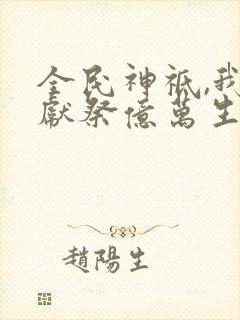 全民神祇,我
獻祭億萬生
趙陽生